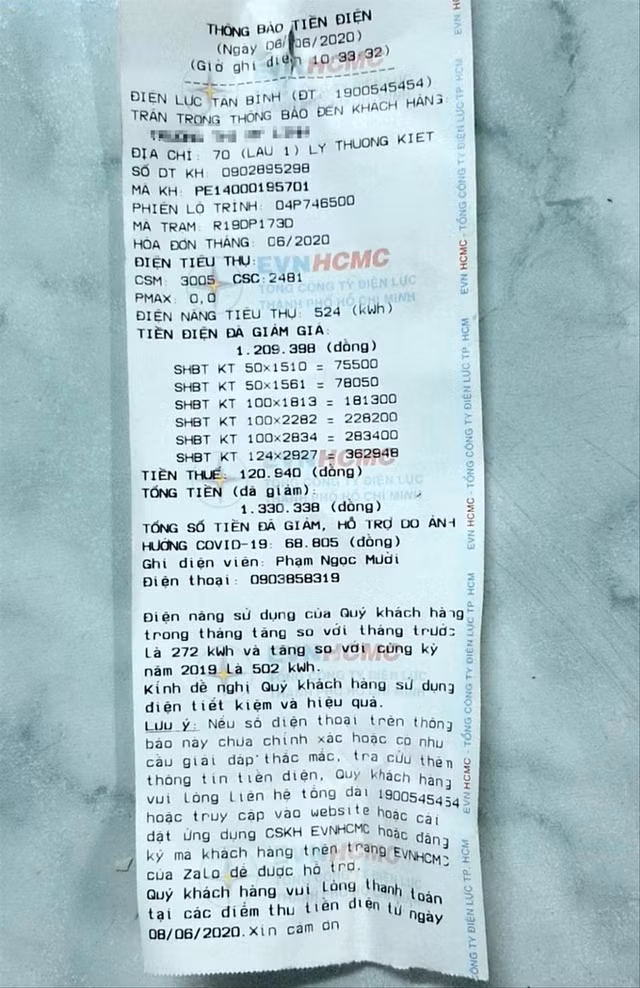 THÔNG BÁO TIỀN ĐIỆN
(Ngày 06/06/2020)
(Giờ ghi điện 10:33:32)
ĐIỆN LỰC TÂN BÌNH (ĐT: 1900545454)
TRÂN TRỌNG THÔNG BÁO ĐẾN KHÁCH HÀNG
ĐỊA CHỈ: 70 (LẦU 1) LÝ THƯỜNG KIỆT
SỐ ĐT KH: 0902895298
MÃ KH: PE14000195701
PHIÊN LỘ TRÌNH: 04P746500
MÃ TRẠM: R19DP173D
HÓA ĐƠN THÁNG: 06/2020
ĐIỆN TIÊU THỤ:
CSM: 3005 CSC:2481
PMAX: 0,0
ĐIỆN NĂNG TIÊU THỤ: 524 (kWh)
TIỀN ĐIỆN ĐÃ GIẢM GIÁ:
1.209.398 (đồng)
SHBT KT 50x1510 = 75500
SHBT KT 50x1561 = 78050
SHBT KT 100x1813 = 181300
SHBT KT 100x2282 = 228200
SHBT KT 100x2834 = 283400
SHBT KT 124x2927 = 362948
TIỀN THUẾ: 120.940 (đồng)
TỔNG TIỀN (đã giảm):
1.330.338 (đồng)
TỔNG SỐ TIỀN ĐÃ GIẢM, HỖ TRỢ DO ẢNH
HƯỞNG COVID-19: 68.805 (đồng)
Ghi điện viên: Phạm Ngọc Mười
Điện thoại: 0903858319
Điện năng sử dụng của Quý khách hàng
trong tháng tăng so với tháng trước
là 272 kWh và tăng so với cùng kỳ
năm 2019 là 502 kWh.
Kính đề nghị Quý khách hàng sử dụng
điện tiết kiệm và hiệu quả.
Lưu ý: Nếu số điện thoại trên thông
báo này chưa chính xác hoặc có nhu
cầu giải đáp thắc mắc, tra cứu thêm
thông tin tiền điện, Quý khách hàng
vui lòng liên hệ tổng đài 1900545454
hoặc truy cập vào website hoặc cài
đặt ứng dụng CSKH EVNHCMC hoặc đăng
ký mã khách hàng trên trang EVNHCMC
của Zalo để được hỗ trợ.
Quý khách hàng vui lòng thanh toán
tại các điểm thu tiền điện từ ngày
08/06/2020.Xin cám ơn
EVNHCMC
TỔNG CÔNG TY ĐIỆN LỰC
THÀNH PHỐ HỒ CHÍ MINH
EVN HCMC - TỔNG CÔNG TY ĐIỆN LỰC TP. HCM